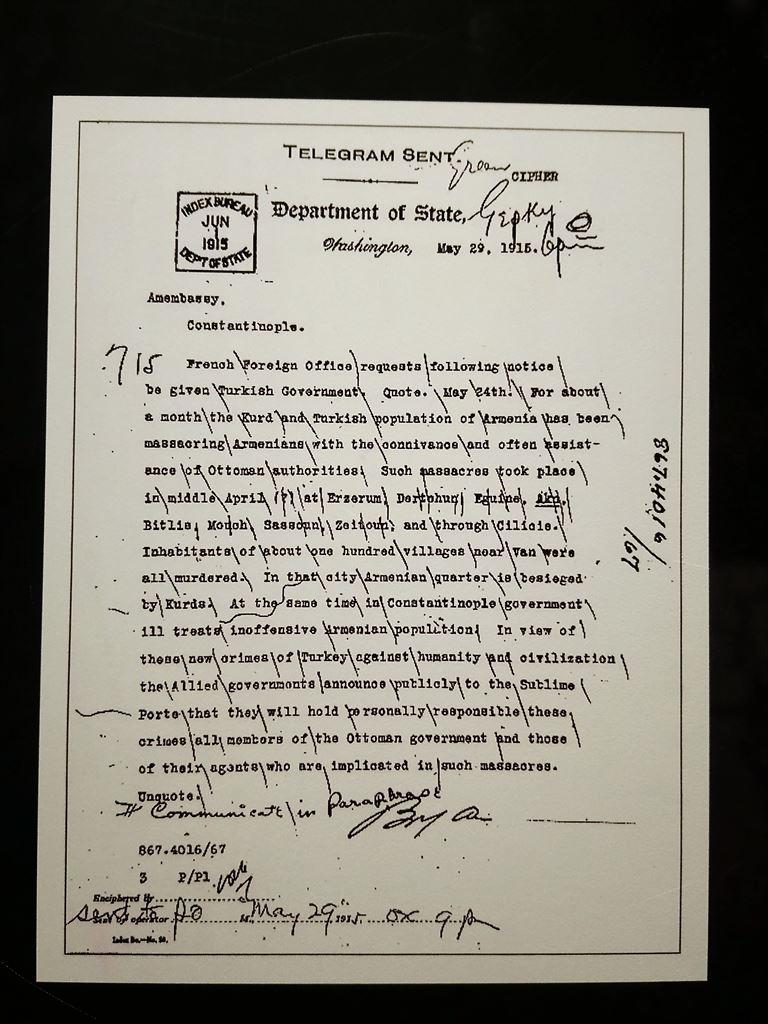 TELEGRAM SENT.
Green CIPHER
INDEX BUREAU
JUN
1915
DEPT OF STATE
Department of State,
Washington, May 29, 1915.
6pm
Amembassy,
Constantinople.
715 French Foreign Office requests following notice
be given Turkish Government. Quote. May 24th. For about
a month the Kurd and Turkish population of Armenia has been
massacring Armenians with the connivance and often assist-
ance of Ottoman authorities. Such massacres took place
in middle April (?) at Erzerum, Dertchun, Eguine, Akn,
Bitlis, Mouch, Sassoun, Zeitoun, and through Cilicie.
Inhabitants of about one hundred villages near Van were
all murdered. In that city Armenian quarter is besieged
by Kurds. At the same time in Constantinople government
ill treats inoffensive Armenian population. In view of
these new crimes of Turkey against humanity and civilization
the Allied governments announce publicly to the Sublime
Porte that they will hold personally responsible these
crimes all members of the Ottoman government and those
of their agents who are implicated in such massacres.
Unquote.
# Communicate in Paraphrase
867.4016/67
867.4016/67
3 P/Pl
Enciphered by
Sent by operator M. 191
sent to May 29 1915
Index Bu.—No. 50.